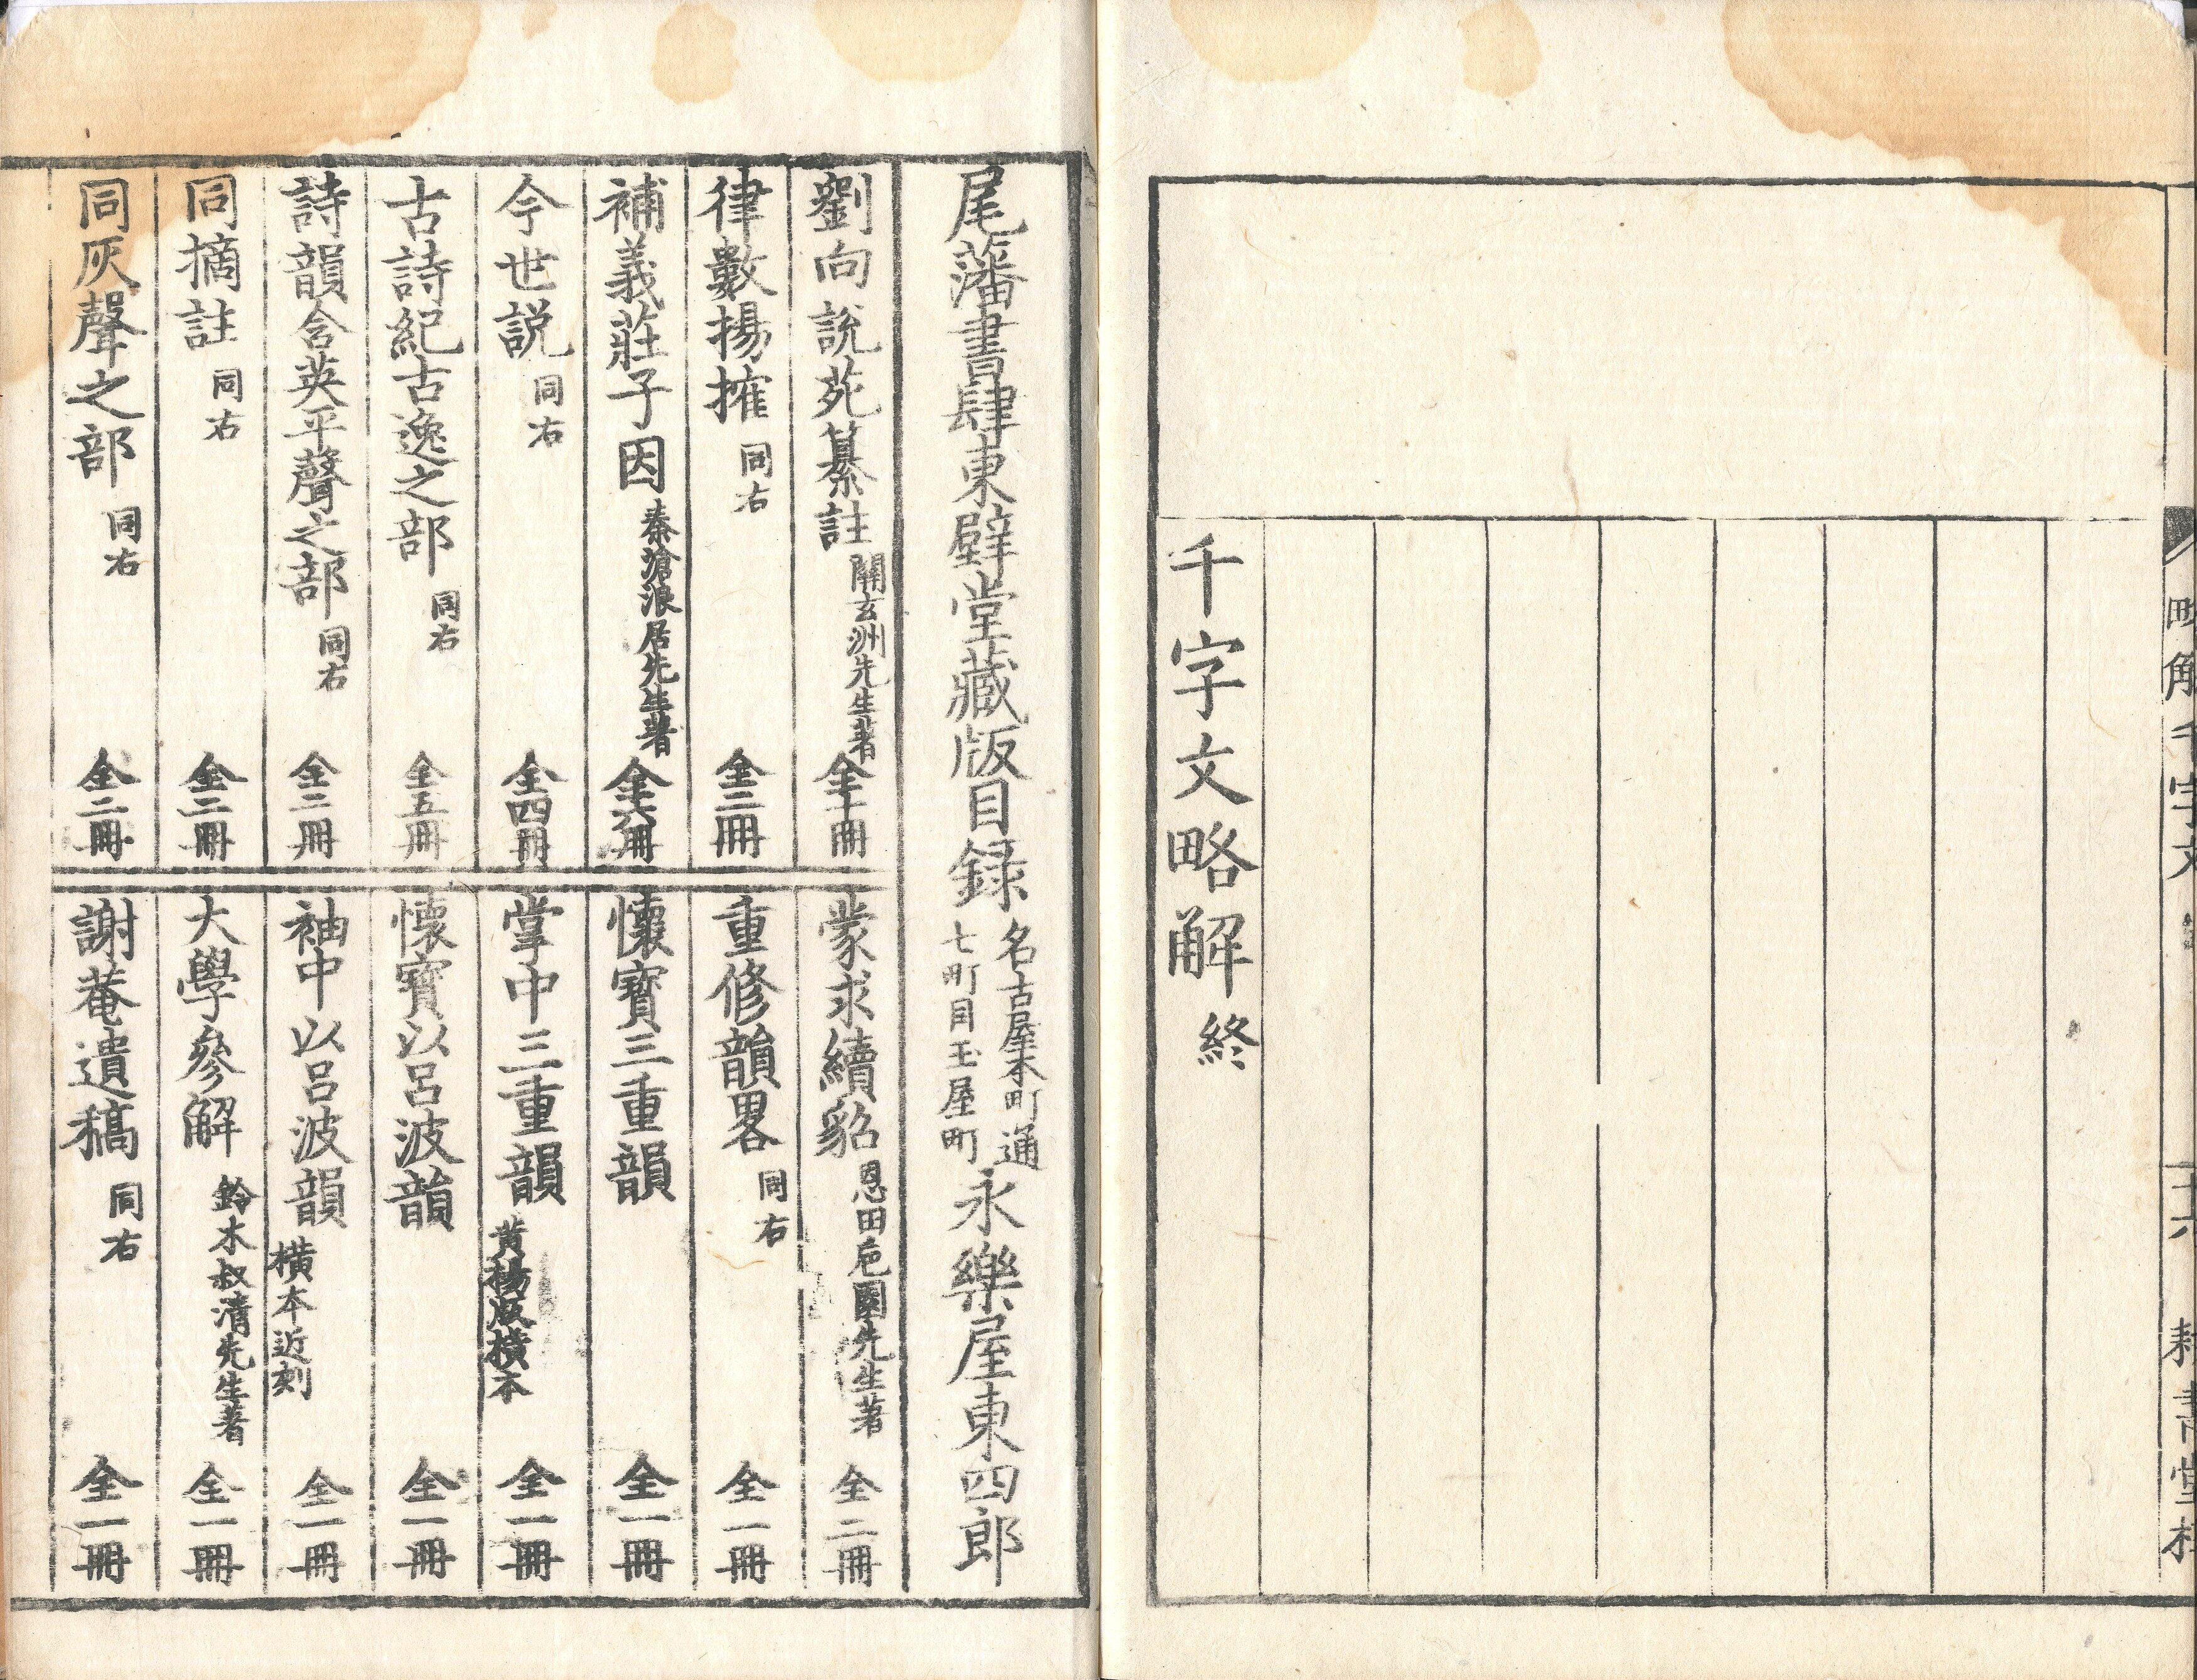 千字文略解 終
尾藩書肆東壁堂藏版目録 名古屋本町通 七町目玉屋町 永樂屋東四郎
劉向説苑纂註 關玄洲先生著 全十冊
律數揚搉 同右 全三冊
補義莊子因 秦滄浪居先生著 全六冊
今世説 同右 全四冊
古詩紀古逸之部 同右 全五冊
詩韻含英平聲之部 同右 全二冊
同摘註 同右 全二冊
同灰聲之部 同右 全二冊
蒙求續貂 恩田巵園先生著 全二冊
重修韻畧 同右 全一冊
懷寶三重韻 全一冊
掌中三重韻 黄楊版横本 全一冊
懷寶以呂波韻 全一冊
袖中以呂波韻 横本近刻 全一冊
大學參解 鈴木叔清先生著 全一冊
謝菴遺稿 同右 全一冊